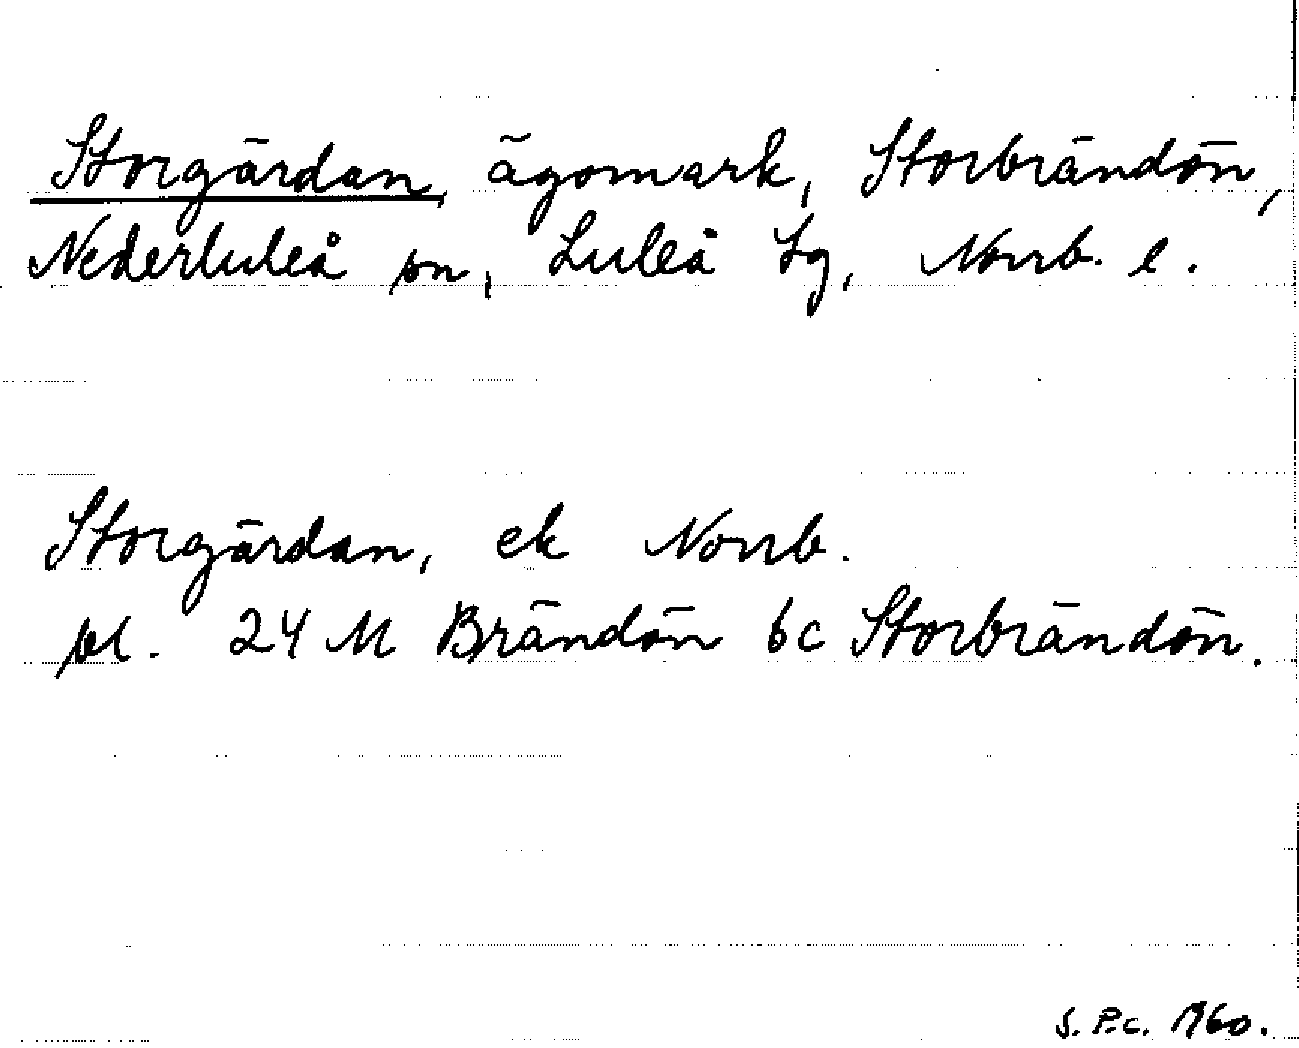 Storgärdan, ägomark, Storbrändön,
Nederluleå sn, Luleå tg, Norrb. l.
Storgärdan, ek Norrb.
bl. 24 M Brändön 6c Storbrändön.
S. P.c. 1960.